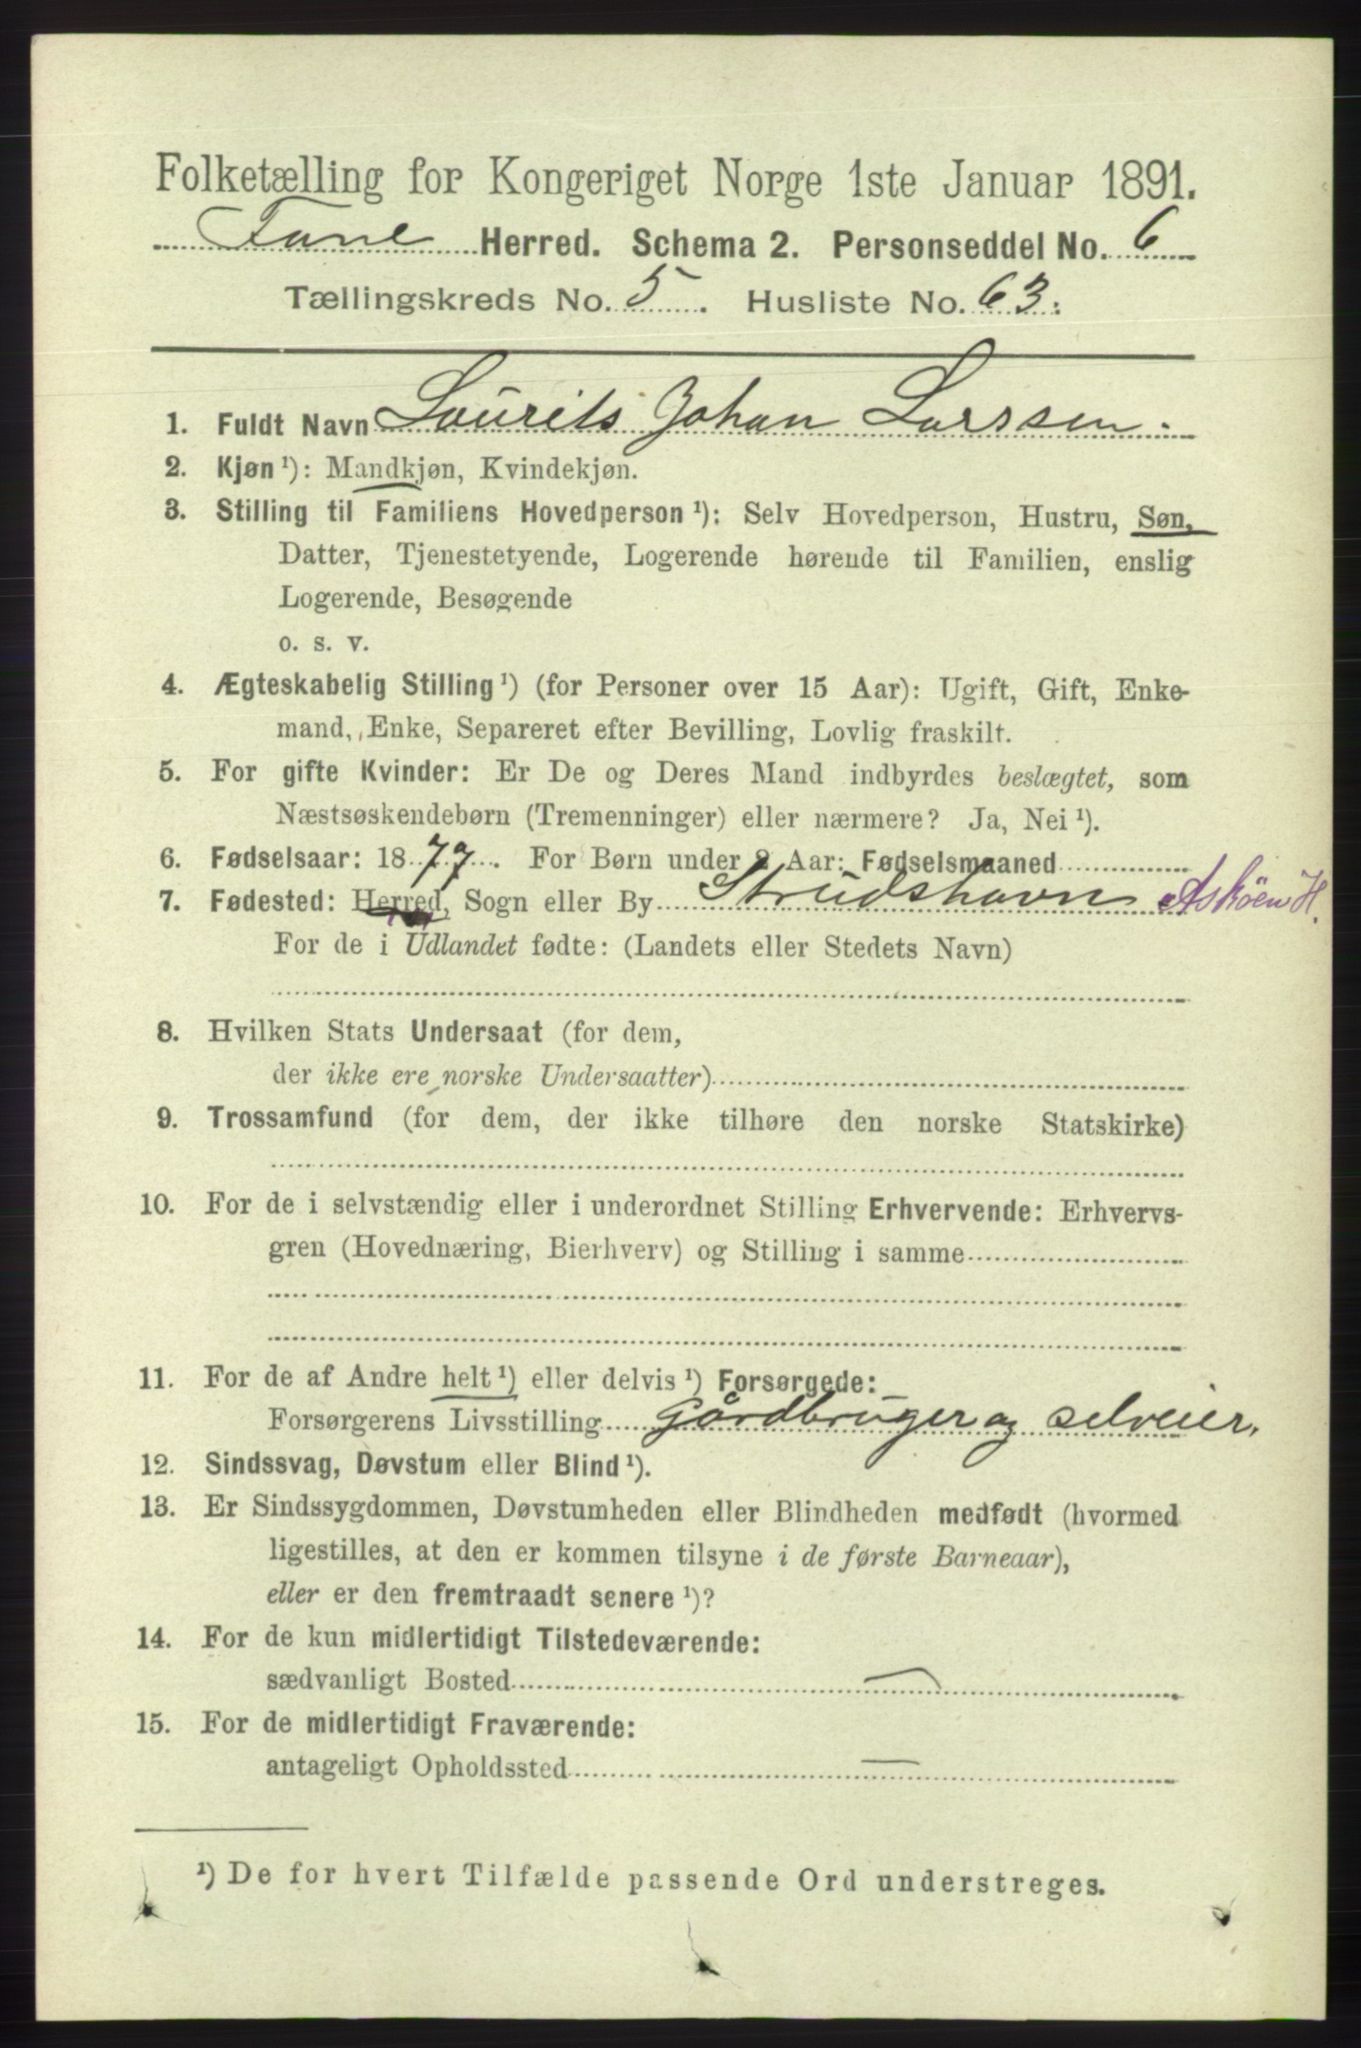 Folketælling for Kongeriget Norge 1ste Januar 1891.
Fane Herred. Schema 2. Personseddel No. 6
Tællingskreds No. 5. Husliste No. 63.
1. Fuldt Navn Laurits Johan Larssen.
2. Kjøn ¹): Mandkjøn, Kvindekjøn.
3. Stilling til Familiens Hovedperson ¹): Selv Hovedperson, Hustru, Søn,
Datter, Tjenestetyende, Logerende hørende til Familien, enslig
Logerende, Besøgende
o. s. v.
4. Ægteskabelig Stilling ¹) (for Personer over 15 Aar): Ugift, Gift, Enke-
mand, Enke, Separeret efter Bevilling, Lovlig fraskilt.
5. For gifte Kvinder: Er De og Deres Mand indbyrdes beslægtet, som
Næstsøskendebørn (Tremenninger) eller nærmere? Ja, Nei ¹).
6. Fødselsaar: 1877. For Børn under 2 Aar: Fødselsmaaned
7. Fødested: Herred, Sogn eller By Strudshavn Askøen H.
For de i Udlandet fødte: (Landets eller Stedets Navn)
8. Hvilken Stats Undersaat (for dem,
der ikke ere norske Undersaatter)
9. Trossamfund (for dem, der ikke tilhøre den norske Statskirke)
10. For de i selvstændig eller i underordnet Stilling Erhvervende: Erhvervs-
gren (Hovednæring, Bierhverv) og Stilling i samme
11. For de af Andre helt ¹) eller delvis ¹) Forsørgede:
Forsørgerens Livsstilling Gårdbruger og selveier.
12. Sindssvag, Døvstum eller Blind ¹).
13. Er Sindssygdommen, Døvstumheden eller Blindheden medfødt (hvormed
ligestilles, at den er kommen tilsyne i de første Barneaar),
eller er den fremtraadt senere ¹)?
14. For de kun midlertidigt Tilstedeværende:
sædvanligt Bosted —
15. For de midlertidigt Fraværende:
antageligt Opholdssted —
¹) De for hvert Tilfælde passende Ord understreges.